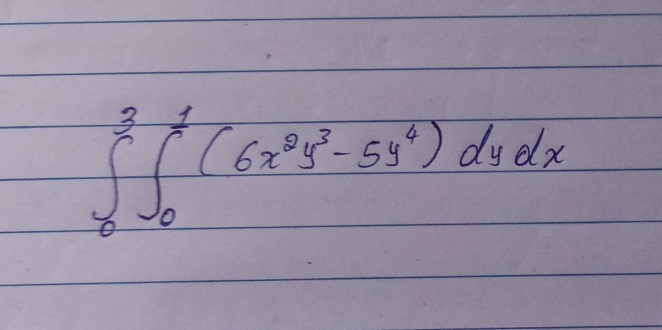 ∫₀³ ∫₀¹ (6x²y³ - 5y⁴) dy dx